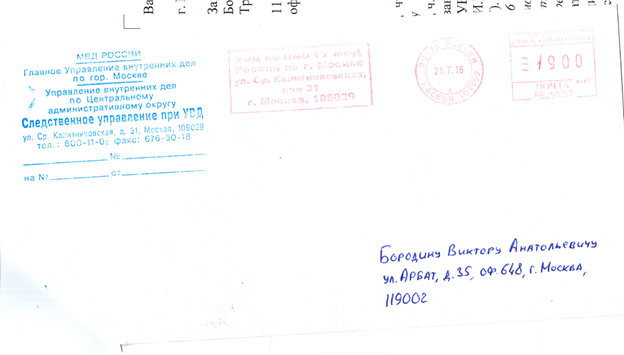 МВД РОССИИ
Главное Управление внутренних дел
по гор. Москве
Управление внутренних дел
по Центральному
административному округу
Следственное управление при УВД
ул. Ср. Калитниковская, д. 31, Москва, 109029
тел.: 600-11-0 факс: 676-50-18
№
на № от
России по г. Москве
ул. Ср. Калитниковская,
дом 31
г. Москва, 109029
21.7.16
1900
ПОЧТА
Бородину Виктору Анатольевичу
ул. Арбат, д. 35, оф. 648, г. Москва,
119002